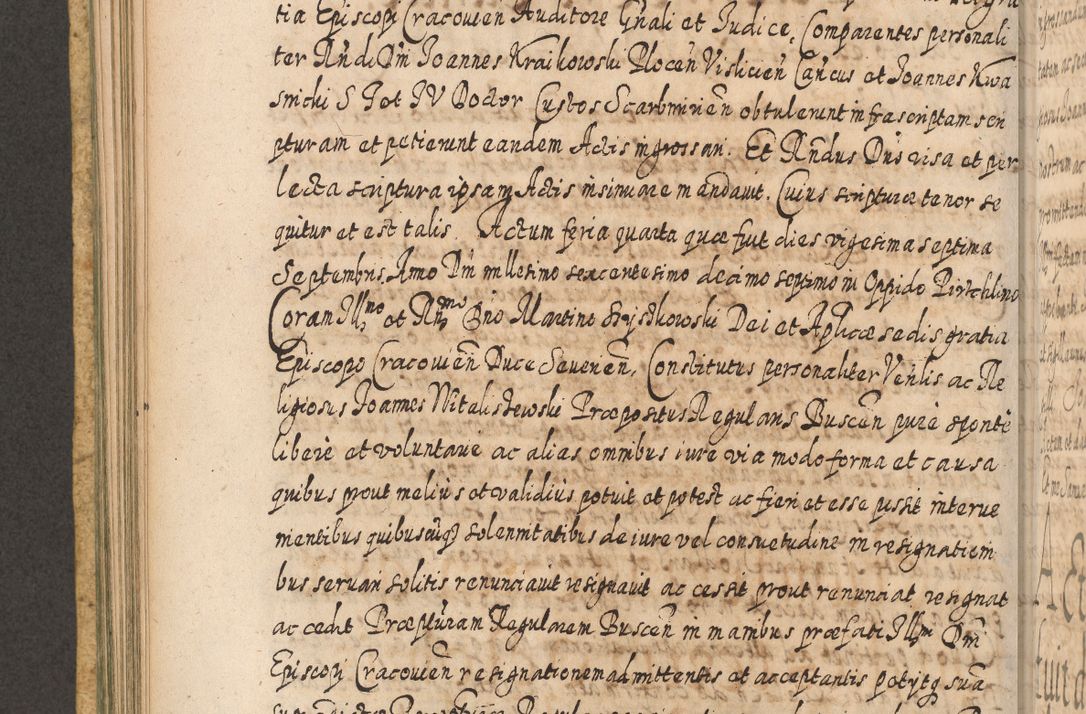 tia Episcopi Cracovien Auditore Gnali et Judice, Comparentes personali
ter Rndi Dni Joannes Kraikowski Plocen Vislicien Cancus et Joannes Kwa
snicki S J et JV Doctor Custos Scarbmirien obtulerunt infrascriptam scri
pturam et petierunt eandem Actis ingrossari. Et Rndus Dns visa et per
lecta scriptura ipsam Actis insinuare mandavit. Cuius scripturæ tenor se
quitur et est talis. Actum feria quarta quæ fuit dies vigesima septima
Septembris Anno Dni millesimo sexcentesimo decimo septimo in Oppido
Coram Illmo et Rndmo Dno Martino Szyszkowski Dei et Aplicæ sedis gratia
Episcopo Cracovien Duce Severien, Constitutus personaliter Venlis ac Re
ligiosus Joannes Witaliszewski Præpositus Regularis Buscen pure sponte
libere et voluntarie ac alias omnibus iure via modo forma et causa
quibus prout melius et validius potuit et potest ac fieri et esse possit interve
nientibus quibuscunq solennitatibus de iure vel consuetudine in resignationi
bus servari solitis renunciavit resignavit ac cessit prout renunciat resignat
ac cedit Præpturam Regularem Buscen in manibus præfati Illmi Dni
Episcopi Cracovien resignationem admittentis et acceptantis potytq sua